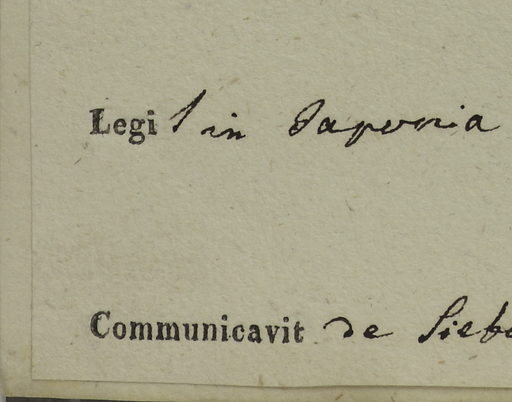 Legi in Japonia
Communicavit de Siebo